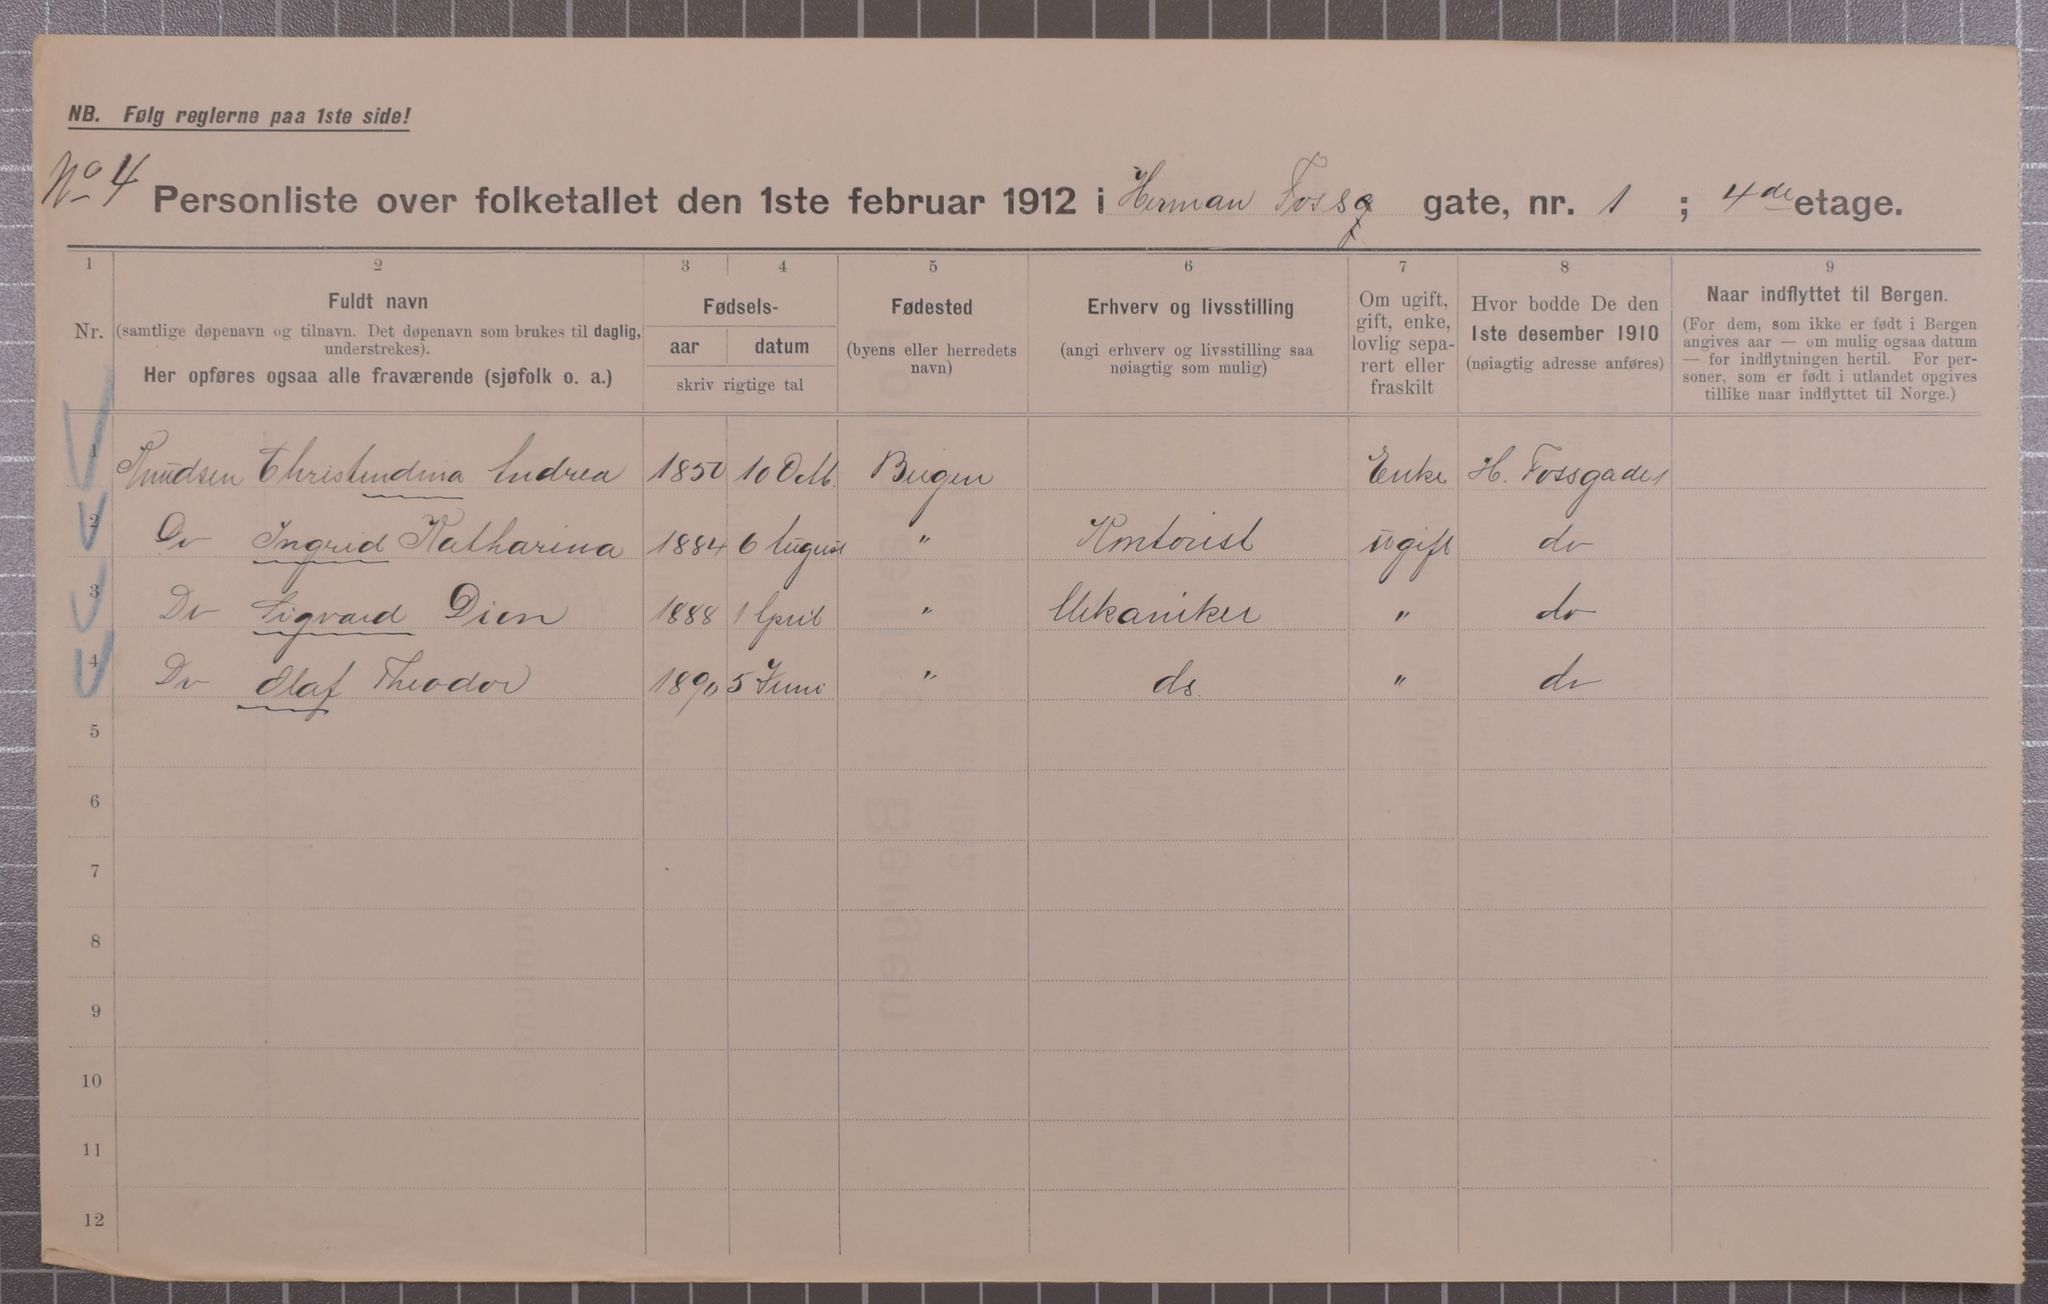 NB. Følg reglerne paa 1ste side!
No 4
Personliste over folketallet den 1ste februar 1912 i Herman Foss g gate, nr. 1 ; 4de etage.
1 2 3 4 5 6 7 8 9
Nr.
Fuldt navn
(samtlige døpenavn og tilnavn. Det døpenavn som brukes til daglig,
understrekes).
Her opføres ogsaa alle fraværende (sjøfolk o. a.)
Fødsels-
aar datum
skriv rigtige tal
Fødested
(byens eller herredets
navn)
Erhverv og livsstilling
(angi erhverv og livsstilling saa
nøiagtig som mulig)
Om ugift,
gift, enke,
lovlig sepa-
rert eller
fraskilt
Hvor bodde De den
1ste desember 1910
(nøiagtig adresse anføres)
Naar indflyttet til Bergen.
(For dem, som ikke er født i Bergen
angives aar — om mulig ogsaa datum
— for indflytningen hertil. For per-
soner, som er født i utlandet opgives
tillike naar indflyttet til Norge.)
1 Knudsen Andrea 1850 10 Octb. Bergen Enke H. Fossgade 1
2 Do Ingrid Katharina 1884 6 August " Kontorist ugift do
3 Do Sigvard Dien 1888 1 April " Mekaniker " do
4 Do Olaf Theodor 1890 5 Juni " do. " do
5
6
7
8
9
10
11
12